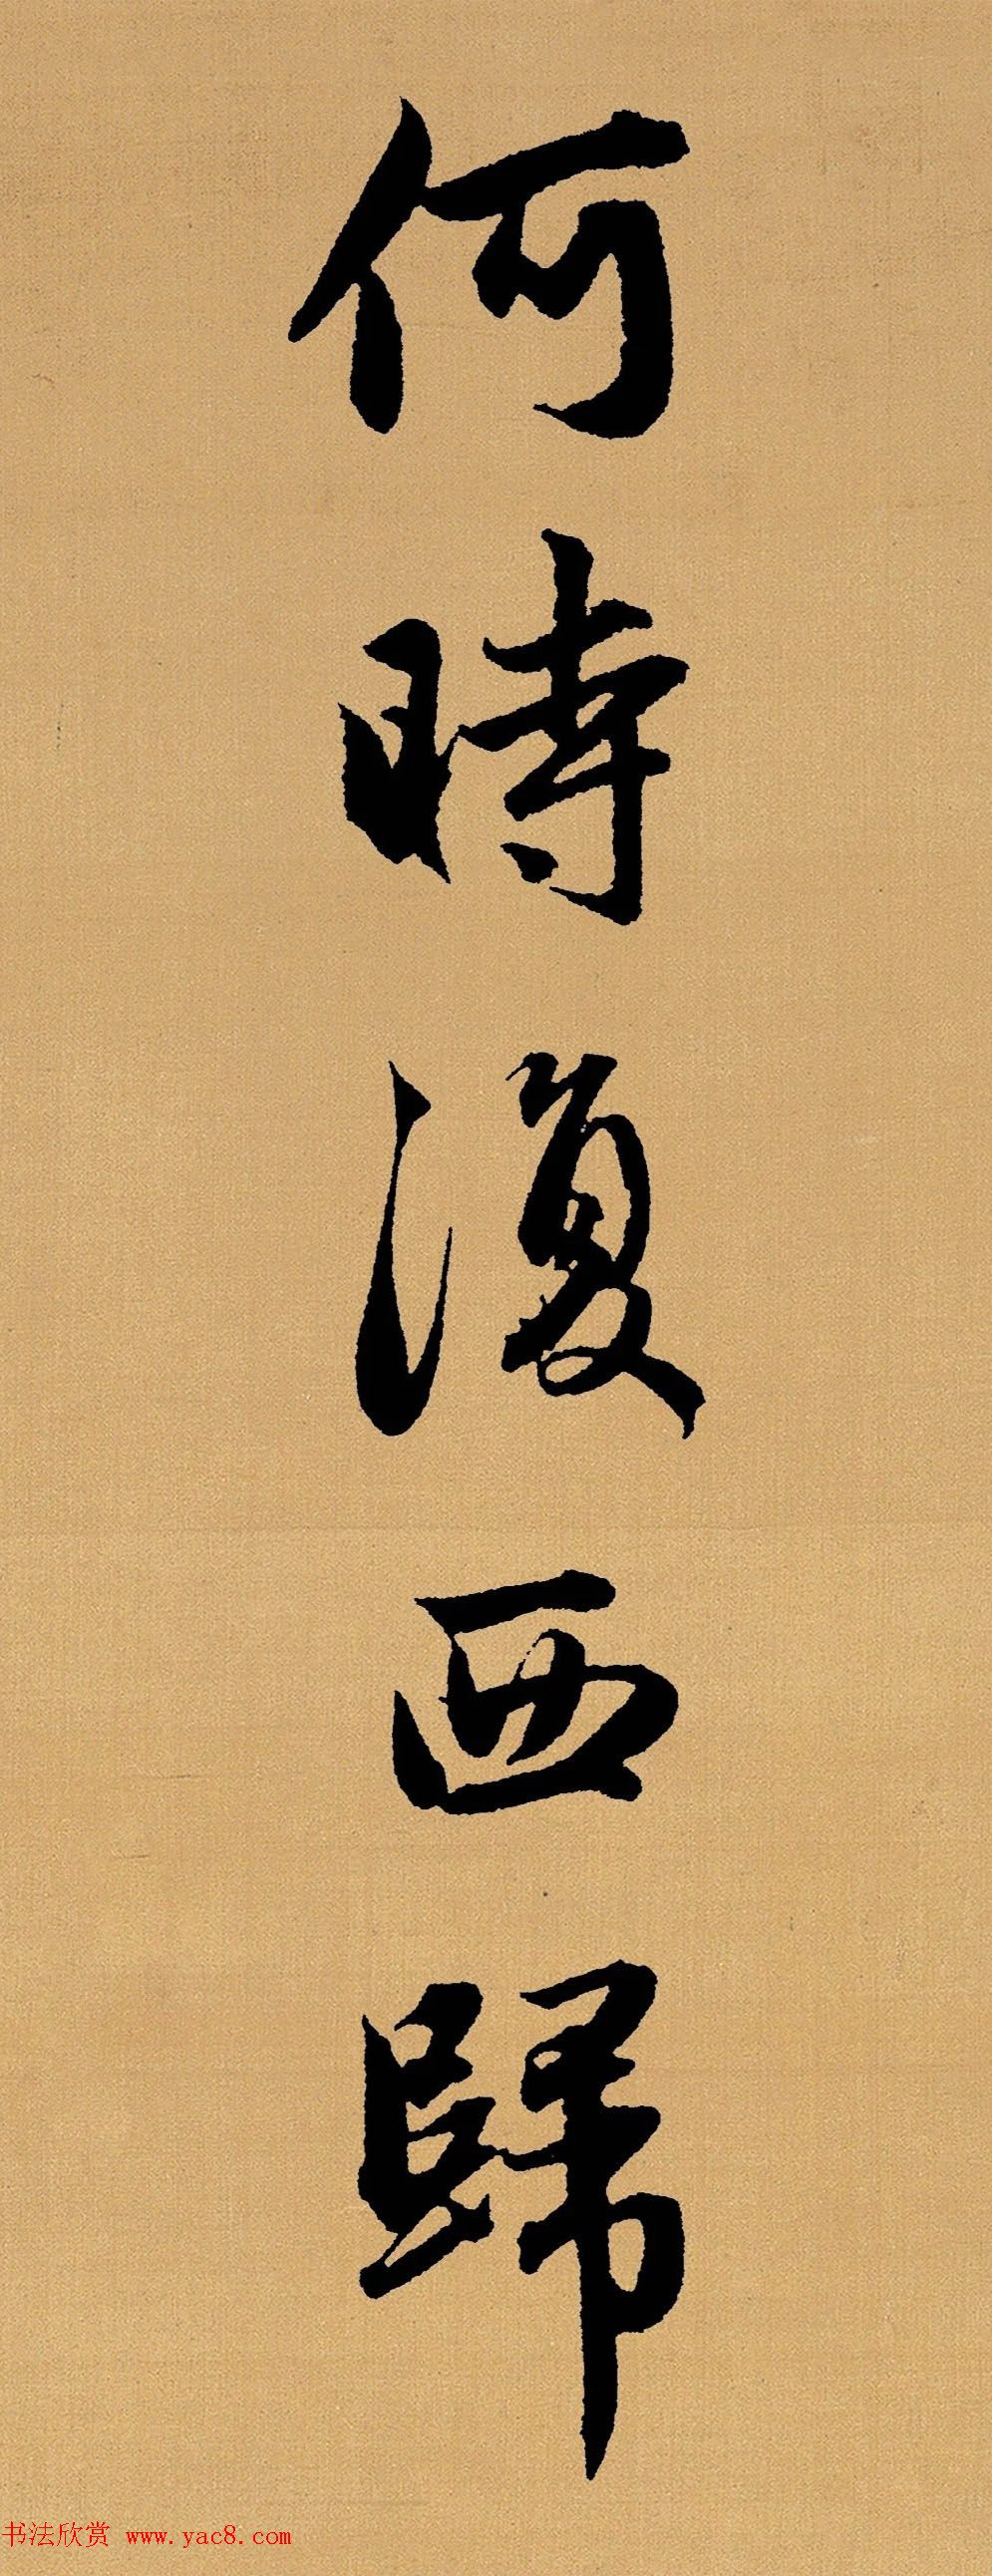 何時復西歸
书法欣赏 www.yac8.com